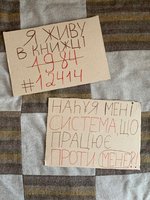 Я ЖИВУ
В КНИЖЦІ
1984
#12414
НАХ*Я МЕНІ
СИСТЕМА ЩО
ПРАЦЮЄ
ПРОТИ МЕНЕ?!